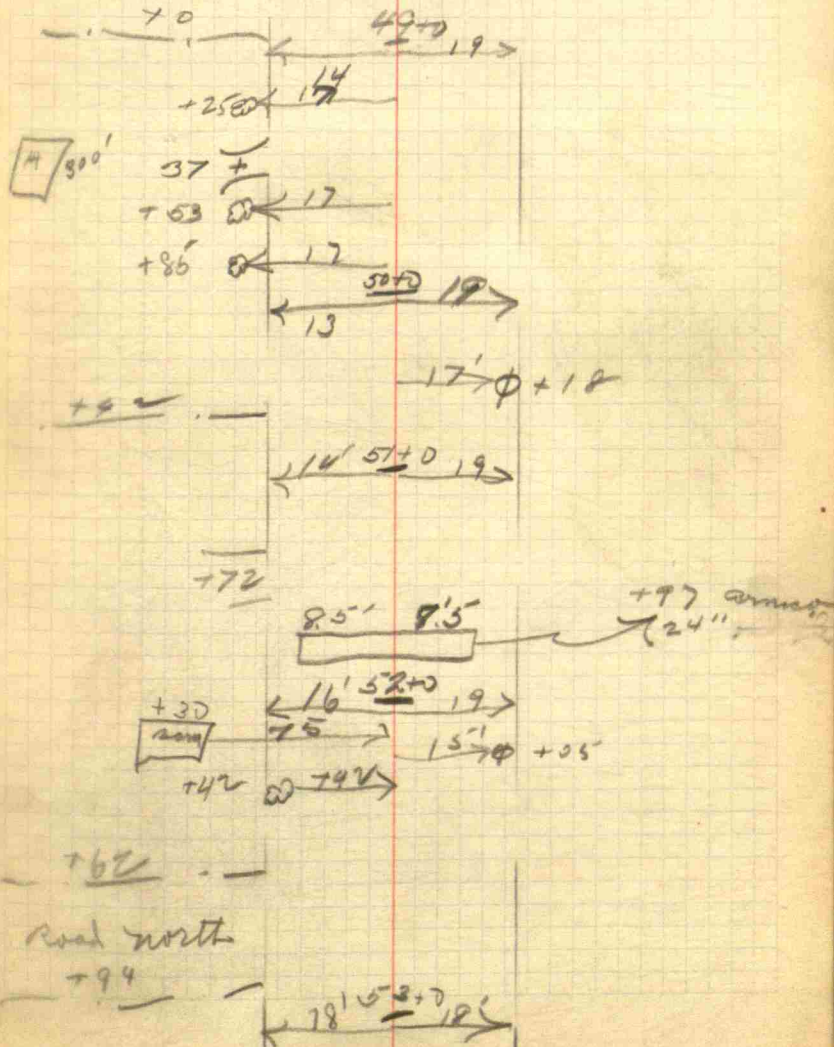 +0 49+0 19
+25 14
H 300' 37 +
+53 17
+85 17
50+0 19
13
17' ϕ +18
+42
14' 51+0 19
+72
8.5' 8.5' +97
24"
16' 52+0 19
+30 75
15' ϕ +05
+42 +42
+62
Road north
+94
18' 53+0 18'